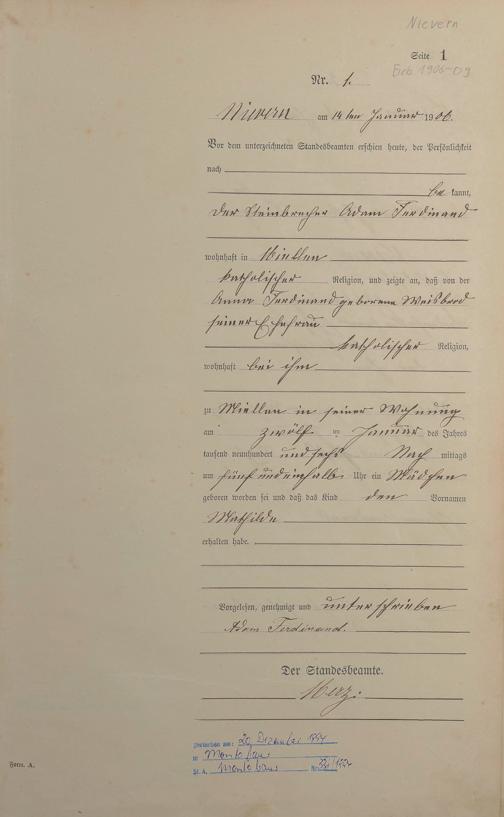 Nievern
Seite 1
Geb 1906-09
Nr. 1.
Nievern am 14ten Januar 1906.
Vor dem unterzeichneten Standesbeamten erschien heute, der Persönlichkeit
nach
be kannt,
der Steinbrecher Adam Ferdinand
wohnhaft in Miellen
katholischer Religion, und zeigte an, daß von der
Anna Ferdinand geborene Weisbrod
seiner Ehefrau
katholischer Religion,
wohnhaft bei ihm
zu Miellen in seiner Wohnung
am zwölf ten Januar des Jahres
tausend neunhundert und sechs Nach mittags
um fünf und einhalb Uhr ein Mädchen
geboren worden sei und daß das Kind den Vornamen
Mathilde
erhalten habe.
Vorgelesen, genehmigt und unterschrieben
Adam Ferdinand.
Der Standesbeamte.
Merz.
Verstorben am: 20. Dezember
in Montabaur
St. A. Montabaur Nr.
Form. A.